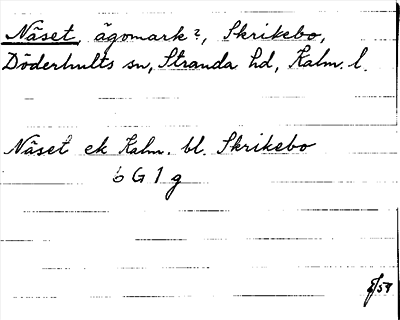 Näset, ägomark?, Skrikebo,
Döderhults sn, Stranda hd, Kalm. l.
Näset ek Kalm. bl. Skrikebo
6 G 1 g
/59